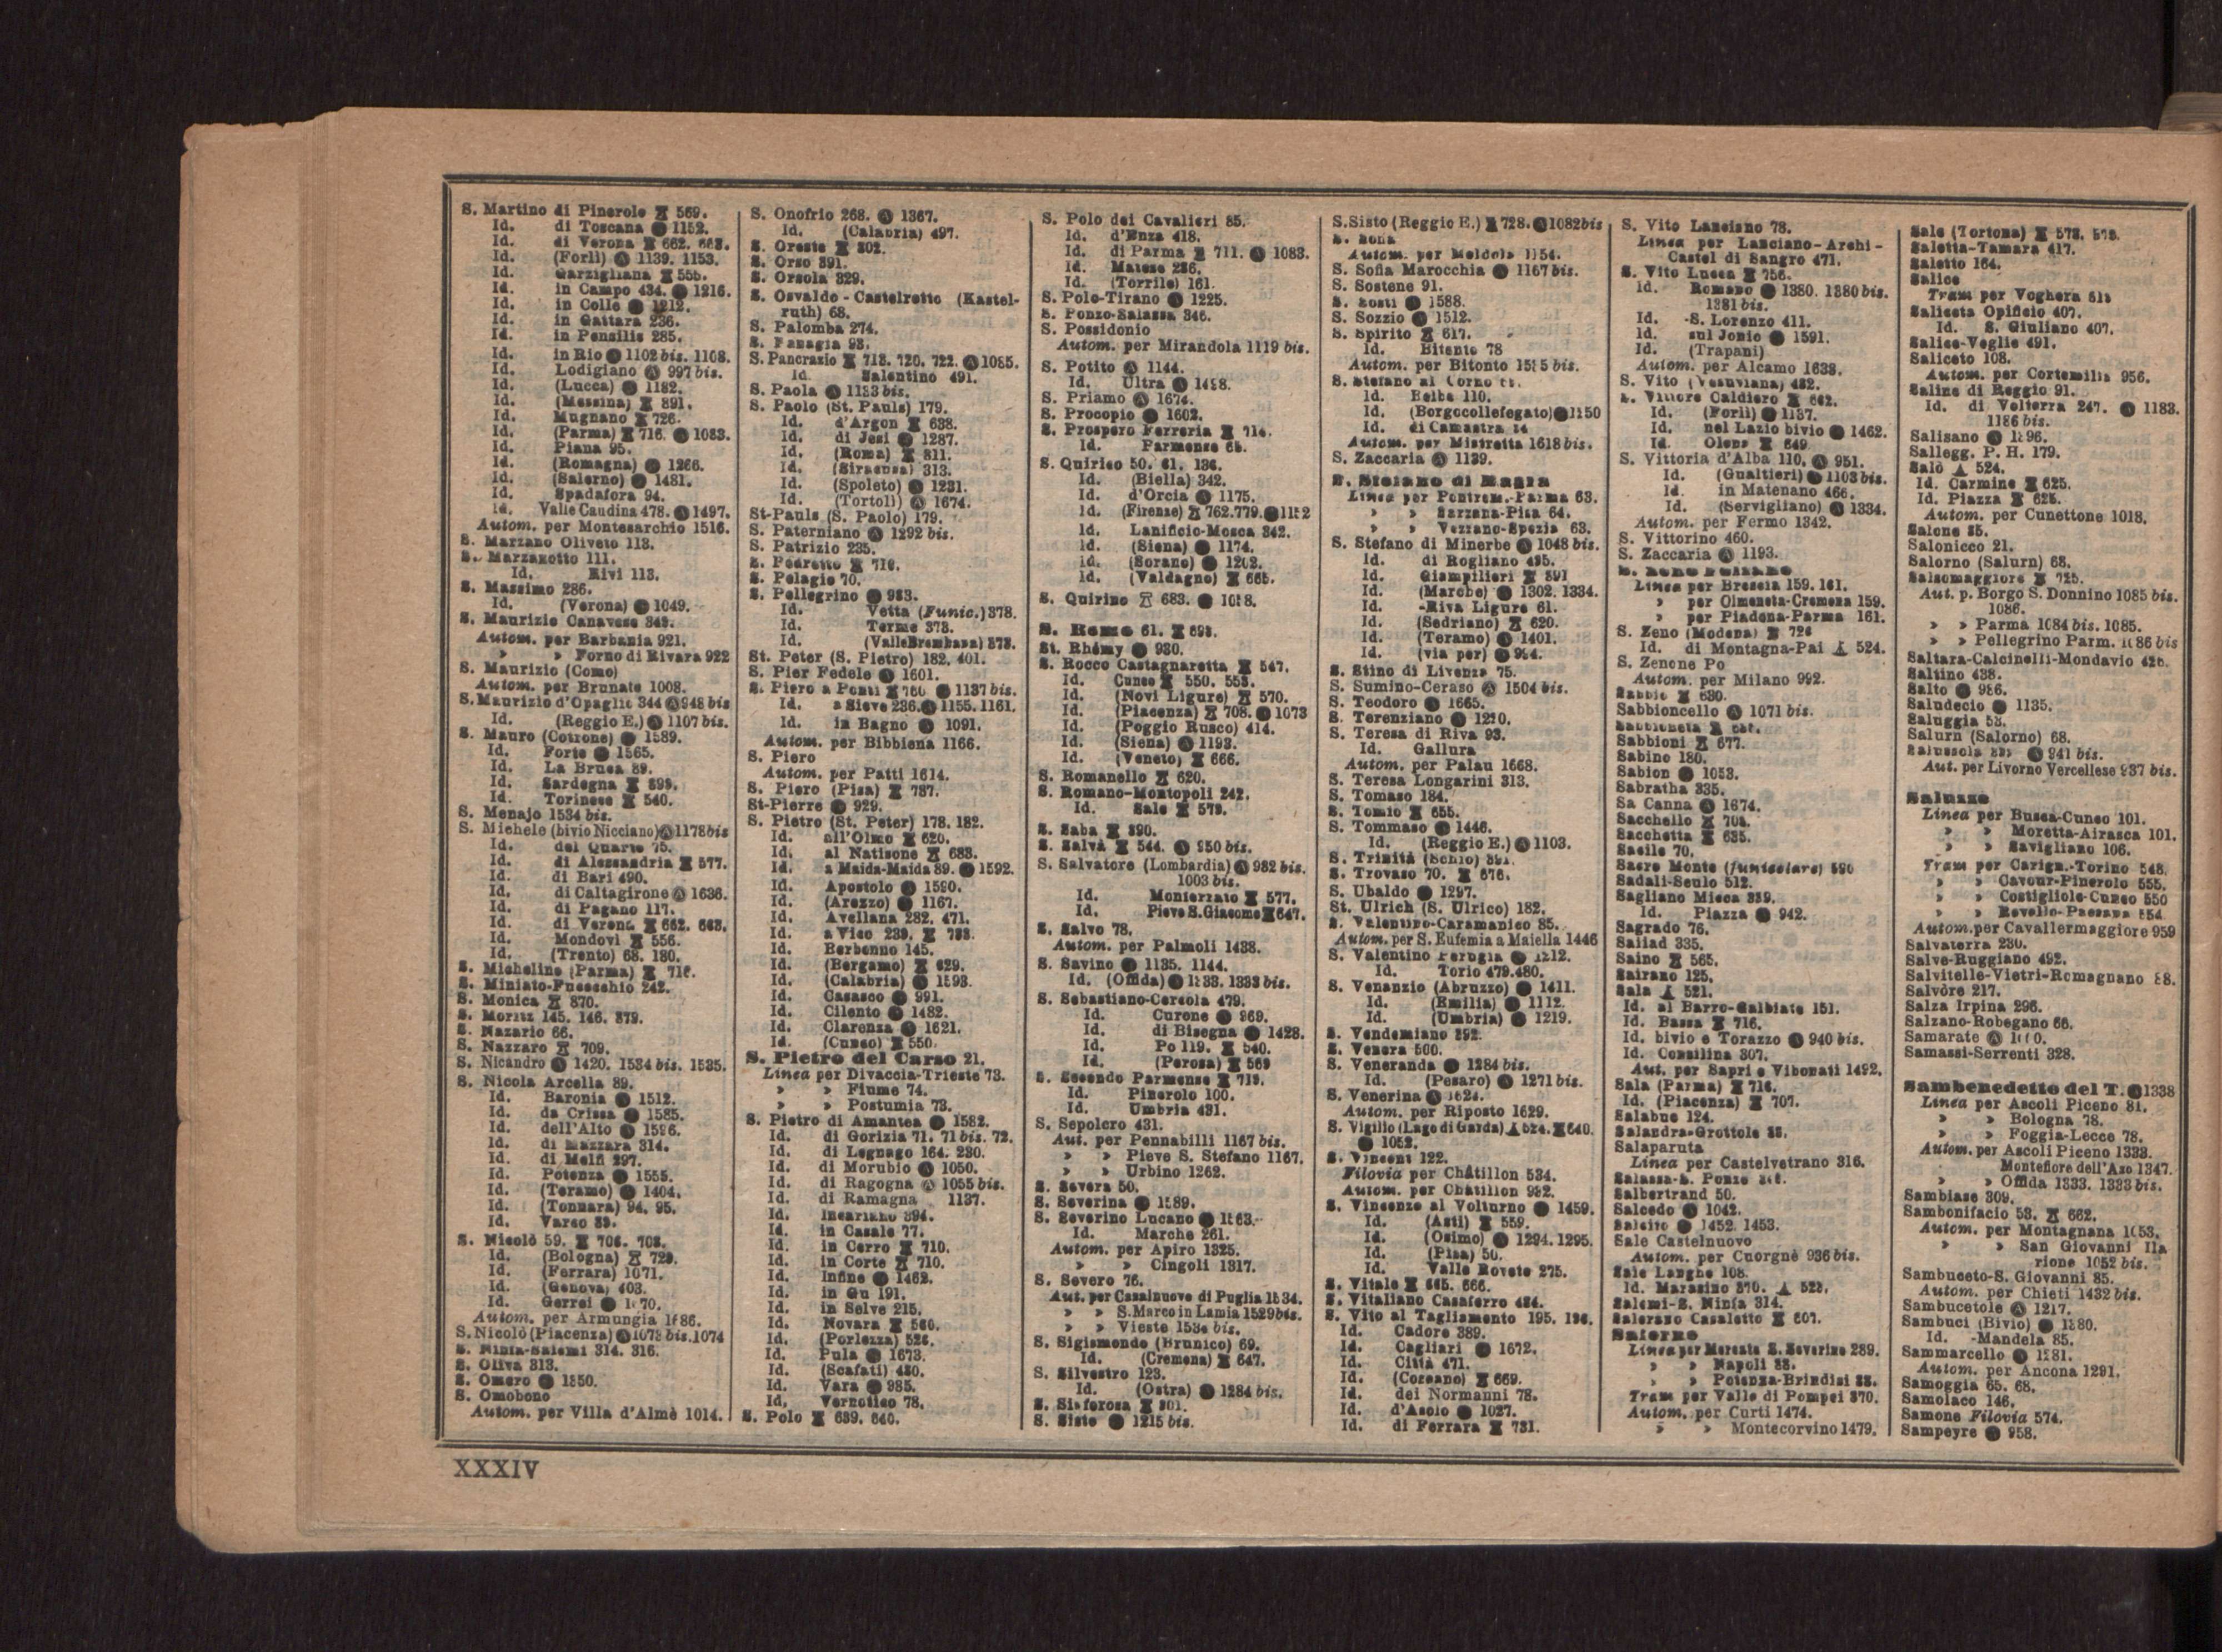 S. Martino di Pinerolo 569.
Id. di Toscana 1152.
Id. di Verona 662. 663.
Id. (Forlì) 1139. 1153.
Id. Garzigliana 555.
Id. in Campo 434. 1216.
Id. in Colle 1212.
Id. in Gattara 236.
Id. in Pensilis 285.
Id. in Rio 1102 bis. 1108.
Id. Lodigiano 997 bis.
Id. (Lucca) 1182.
Id. (Messina) 891.
Id. Mugnano 726.
Id. (Parma) 716. 1083.
Id. Piana 95.
Id. (Romagna) 1266.
Id. (Salerno) 1481.
Id. Spadafora 94.
Id. Valle Caudina 478. 1497.
Autom. per Montesarchio 1516.
S. Marzano Oliveto 113.
S. Marzanotto 111.
Id. Rivi 113.
S. Massimo 286.
Id. (Verona) 1049.
S. Maurizio Canavese 343.
Autom. per Barbania 921.
» » Forno di Rivara 922
S. Maurizio (Como)
Autom. per Brunate 1008.
S. Maurizio d'Opaglio 344 948 bis
Id. (Reggio E.) 1107 bis.
S. Mauro (Cotrone) 1589.
Id. Forte 1565.
Id. La Bruca 89.
Id. Sardegna 899.
Id. Torinese 540.
S. Menajo 1534 bis.
S. Michele (bivio Nicciano) 1178 bis
Id. del Quarto 75.
Id. di Alessandria 577.
Id. di Bari 490.
Id. di Caltagirone 1636.
Id. di Pagano 117.
Id. di Verona 662. 663.
Id. Mondovì 556.
Id. (Trento) 68. 180.
S. Micheline (Parma)
S. Miniato-Fucecchio 242.
S. Monica 870.
S. Moritz 145. 146. 379.
S. Nazario 66.
S. Nazzaro 709.
S. Nicandro 1420. 1534 bis. 1535.
S. Nicola Arcella 89.
Id. Baronia 1512.
Id. da Crissa 1585.
Id. dell'Alto 1596.
Id. di Mazzara 314.
Id. di Melfi 297.
Id. Potenza 1555.
Id. (Teramo) 1404.
Id. (Tonnara) 94. 95.
Id. Varco 89.
S. Nicolò 59. 706. 708.
Id. (Bologna) 729.
Id. (Ferrara) 1071.
Id. (Genova) 403.
Id. Gerrei 1670.
Autom. per Armungia 1686.
S. Nicolò (Piacenza) 1073 bis. 1074
S. Ninfa-Salemi 314. 316.
S. Oliva 313.
S. Omero 1350.
S. Omobono
Autom. per Villa d'Almè 1014.
S. Onofrio 268. 1367.
Id. (Calabria) 497.
S. Oreste 802.
S. Orso 391.
S. Orsola 329.
S. Osvaldo - Castelrotto (Kastel-
ruth) 68.
S. Palomba 274.
S. Panagia 93.
S. Pancrazio 713. 720. 722. 1085.
Id. Salentino 491.
S. Paola 1133 bis.
S. Paolo (St. Pauls) 179.
Id. d'Argon 638.
Id. di Jesi 1287.
Id. (Roma) 811.
Id. (Siracusa) 313.
Id. (Spoleto) 1231.
Id. (Tortolì) 1674.
St-Pauls (S. Paolo) 179.
S. Paterniano 1292 bis.
S. Patrizio 235.
S. Pedretto 719.
S. Pelagio 70.
S. Pellegrino 983.
Id. Vetta (Funic.) 378.
Id. Terme 373.
Id. (Valle Brembana) 373.
St. Peter (S. Pietro) 182. 401.
S. Pier Fedele 1601.
S. Piero a Ponti 760 1137 bis.
Id. a Sieve 236. 1155. 1161.
Id. in Bagno 1091.
Autom. per Bibbiena 1166.
S. Piero
Autom. per Patti 1614.
S. Piero (Pisa) 787.
St-Pierre 929.
S. Pietro (St. Peter) 178. 182.
Id. all'Olmo 620.
Id. al Natisone 683.
Id. a Maida-Maida 89. 1592.
Id. Apostolo 1590.
Id. (Arezzo) 1167.
Id. Avellana 282. 471.
Id. a Vico 239. 793.
Id. Berbenno 145.
Id. (Bergamo) 629.
Id. (Calabria) 1593.
Id. Casasco 991.
Id. Cilento 1482.
Id. Clarenza 1621.
Id. (Cuneo) 550.
S. Pietro del Carso 21.
Linea per Divaccia-Trieste 73.
» » Fiume 74.
» » Postumia 73.
S. Pietro di Amantea 1582.
Id. di Gorizia 71. 71 bis. 72.
Id. di Legnago 164. 230.
Id. di Morubio 1050.
Id. di Ragogna 1055 bis.
Id. di Ramagna 1137.
Id. Incariano 394.
Id. in Casale 77.
Id. in Cerro 710.
Id. in Corte 710.
Id. Infine 1462.
Id. in Gu 191.
Id. in Selve 215.
Id. Novara 560.
Id. (Porlezza) 526.
Id. Pula 1673.
Id. (Scafati) 480.
Id. Vara 985.
Id. Vernotico 78.
S. Polo 639. 640.
S. Polo dei Cavalieri 85.
Id. d'Enza 418.
Id. di Parma 711. 1083.
Id. Matese 286.
Id. (Torrile) 161.
S. Polo-Tirano 1225.
S. Ponzo-Salassa 346.
S. Possidonio
Autom. per Mirandola 1119 bis.
S. Potito 1144.
Id. Ultra 1498.
S. Priamo 1674.
S. Procopio 1602.
S. Prospero Ferreria 714.
Id. Parmense 65.
S. Quirico 50. 61. 136.
Id. (Biella) 342.
Id. d'Orcia 1175.
Id. (Firenze) 762. 779. 1152
Id. Lanificio-Mosca 342.
Id. (Siena) 1174.
Id. (Sorano) 1202.
Id. (Valdagno) 665.
S. Quirino 683. 1058.
S. Remo 61. 693.
St. Rhémy 930.
S. Rocco Castagnaretta 547.
Id. Cuneo 550. 553.
Id. (Novi Ligure) 570.
Id. (Piacenza) 708. 1073
Id. (Poggio Rusco) 414.
Id. (Siena) 1193.
Id. (Veneto) 666.
S. Romanello 620.
S. Romano-Montopoli 242.
Id. Sale 573.
S. Saba 890.
S. Salvà 544. 950 bis.
S. Salvatore (Lombardia) 982 bis.
1003 bis.
Id. Monferrato 577.
Id. Pieve S. Giacomo 647.
S. Salvo 78.
Autom. per Palmoli 1438.
S. Savino 1135. 1144.
Id. (Offida) 1333. 1333 bis.
S. Sebastiano-Cercola 479.
Id. Curone 969.
Id. di Bisegna 1428.
Id. Po 119. 540.
Id. (Perosa) 569
S. Secondo Parmense 719.
Id. Pinerolo 100.
Id. Umbria 431.
S. Sepolcro 431.
Aut. per Pennabilli 1167 bis.
» » Pieve S. Stefano 1167.
» » Urbino 1262.
S. Severa 50.
S. Severina 1589.
S. Severino Lucano 1563.
Id. Marche 261.
Autom. per Apiro 1325.
» » Cingoli 1317.
S. Severo 76.
Aut. per Casalnuovo di Puglia 1534.
» » S. Marco in Lamis 1529 bis.
» » Vieste 1534 bis.
S. Sigismondo (Brunico) 69.
Id. (Cremona) 647.
S. Silvestro 123.
Id. (Ostra) 1284 bis.
S. Sinforosa 801.
S. Sisto 1215 bis.
S. Sisto (Reggio E.) 728. 1082 bis
S. Sofia
Autom. per Meldola 1154.
S. Sofia Marocchia 1167 bis.
S. Sostene 91.
S. Sosti 1588.
S. Sozzio 1512.
S. Spirito 617.
Id. Bitonto 78
Autom. per Bitonto 1515 bis.
S. Stefano al Corno
Id. Belbo 110.
Id. (Borgocollefegato) 1250
Id. di Camastra
Autom. per Mistretta 1618 bis.
S. Zaccaria 1139.
S. Stefano di Magra
Linea per Pontrem.-Parma 63.
» » Sarzana-Pisa 64.
» » Vezzano-Spezia 63.
S. Stefano di Minerbe 1048 bis.
Id. di Rogliano 495.
Id. Giampilieri 891
Id. (Marche) 1302. 1334.
Id. -Riva Ligure 61.
Id. (Sedriano) 620.
Id. (Teramo) 1401.
Id. (via per) 994.
S. Stino di Livenza 75.
S. Sumino-Ceraso 1504 bis.
S. Teodoro 1665.
S. Terenziano 1220.
S. Teresa di Riva 93.
Id. Gallura
Autom. per Palau 1668.
S. Teresa Longarini 313.
S. Tomaso 184.
S. Tomio 655.
S. Tommaso 1446.
Id. (Reggio E.) 1103.
S. Trinità (Schio) 391.
S. Trovaso 70. 676.
S. Ubaldo 1297.
St. Ulrich (S. Ulrico) 182.
S. Valentino-Caramanico 85.
Autom. per S. Eufemia a Maiella 1446
S. Valentino Perugia 1212.
Id. Torio 479. 480.
S. Venanzio (Abruzzo) 1411.
Id. (Emilia) 1112.
Id. (Umbria) 1219.
S. Vendemiano 292.
S. Venera 500.
S. Veneranda 1284 bis.
Id. (Pesaro) 1271 bis.
S. Venerina 1624.
Autom. per Riposto 1629.
S. Vigilio (Lago di Garda) 524. 640.
1052.
S. Vincent 122.
Filovia per Châtillon 534.
Autom. per Châtillon 932.
S. Vincenzo al Volturno 1459.
Id. (Asti) 559.
Id. (Osimo) 1294. 1295.
Id. (Pisa) 50.
Id. Valle Roveto 275.
S. Vitale 665. 666.
S. Vitaliano Casaferro 484.
S. Vito al Tagliamento 195. 196.
Id. Cadore 389.
Id. Cagliari 1672.
Id. Città 471.
Id. (Cozzano) 669.
Id. dei Normanni 78.
Id. d'Asolo 1027.
Id. di Ferrara 731.
S. Vito Lanciano 78.
Linea per Lanciano-Archi-
Castel di Sangro 471.
S. Vito Lucca 756.
Id. Romano 1380. 1380 bis.
1381 bis.
Id. -S. Lorenzo 411.
Id. sul Jonio 1591.
Id. (Trapani)
Autom. per Alcamo 1638.
S. Vito (Vesuviana) 482.
S. Vittore Caldiero 662.
Id. (Forlì) 1137.
Id. nel Lazio bivio 1462.
Id. Olona 649
S. Vittoria d'Alba 110. 951.
Id. (Gualtieri) 1103 bis.
Id. in Matenano 466.
Id. (Servigliano) 1334.
Autom. per Fermo 1342.
S. Vittorino 460.
S. Zaccaria 1193.
S. Zeno Folzano
Linea per Brescia 159. 161.
» per Olmeneta-Cremona 159.
» per Piadena-Parma 161.
S. Zeno (Modena) 726
Id. di Montagna-Pai 524.
S. Zenone Po
Autom. per Milano 992.
Sabbio 630.
Sabbioncello 1071 bis.
Sabbioneta
Sabbioni 677.
Sabino 180.
Sabion 1053.
Sabratha 335.
Sa Canna 1674.
Sacchello 704.
Sacchetta 635.
Sacile 70.
Sacro Monte (funicolare) 590
Sadali-Seulo 512.
Sagliano Micca 339.
Id. Piazza 942.
Sagrado 76.
Sailad 335.
Saino 565.
Sairano 125.
Sala 521.
Id. al Barro-Galbiate 151.
Id. Bassa 716.
Id. bivio e Torazzo 940 bis.
Id. Consilina 307.
Aut. per Sapri e Vibonati 1492.
Sala (Parma) 716.
Id. (Piacenza) 707.
Salabue 124.
Salandra-Grottole 88.
Salaparuta
Linea per Castelvetrano 316.
Salassa-S. Ponzo 346.
Salbertrand 50.
Salcedo 1042.
Salcito 1452. 1453.
Sale Castelnuovo
Autom. per Cuorgnè 936 bis.
Sale Langhe 108.
Id. Marasino 370. 523.
Salemi-S. Ninfa 314.
Salerano Casaletto 607.
Salerno
Linea per Mercato S. Severino 289.
» » Napoli 88.
» » Potenza-Brindisi 88.
Tram per Valle di Pompei 870.
Autom. per Curti 1474.
» » Montecorvino 1479.
Sale (Tortona) 573. 579.
Saletta-Tamara 417.
Saletto 164.
Salice
Tram per Voghera
Saliceta Opificio 407.
Id. S. Giuliano 407.
Salice-Veglie 491.
Saliceto 108.
Autom. per Cortemilia 956.
Saline di Reggio 91.
Id. di Volterra 247. 1183.
1186 bis.
Salisano 1396.
Sallegg. P. H. 179.
Salò 524.
Id. Carmine 625.
Id. Piazza 625.
Autom. per Cunettone 1018.
Salone 85.
Salonicco 21.
Salorno (Salurn) 68.
Salsomaggiore 725.
Aut. p. Borgo S. Donnino 1085 bis.
1086.
» » Parma 1084 bis. 1085.
» » Pellegrino Parm. 1086 bis
Saltara-Calcinelli-Mondavio 426.
Saltino 438.
Salto 986.
Saludecio 1135.
Saluggia 53.
Salurn (Salorno) 68.
Salussola 941 bis.
Aut. per Livorno Vercellese 937 bis.
Saluzzo
Linea per Busca-Cuneo 101.
» » Moretta-Airasca 101.
» » Savigliano 106.
Tram per Carign.-Torino 548.
» » Cavour-Pinerolo 555.
» » Costigliole-Cuneo 550
» » Revello-Paesana 554
Autom. per Cavallermaggiore 959
Salvaterra 230.
Salve-Ruggiano 492.
Salvitelle-Vietri-Romagnano 88.
Salvòre 217.
Salza Irpina 296.
Salzano-Robegano 66.
Samarate
Samassi-Serrenti 328.
Sambenedetto del T. 1338
Linea per Ascoli Piceno 81.
» » Bologna 78.
» » Foggia-Lecce 78.
Autom. per Ascoli Piceno 1333.
Montefiore dell'Aso 1347.
» » Offida 1333. 1333 bis.
Sambiase 309.
Sambonifacio 53. 662.
Autom. per Montagnana 1053.
» » San Giovanni Ila
rione 1052 bis.
Sambuceto-S. Giovanni 85.
Autom. per Chieti 1432 bis.
Sambucetole 1217.
Sambuci (Bivio) 1380.
Id. -Mandela 85.
Sammarcello 1281.
Autom. per Ancona 1291.
Samoggia 65. 68.
Samolaco 146.
Samone Filovia 574.
Sampeyre 958.
XXXIV